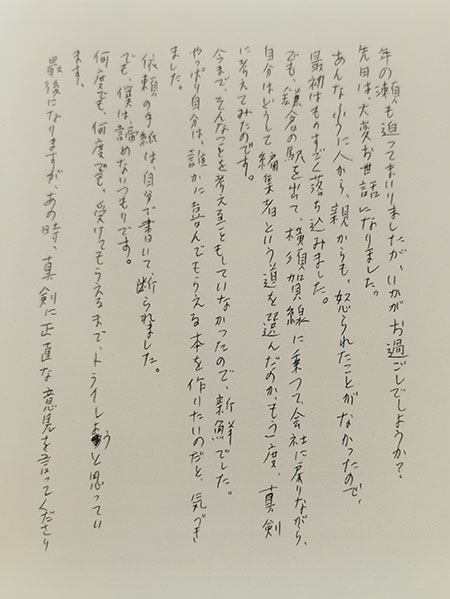 年の瀬も迫ってまいりましたが、いかがお過ごしでしょうか？
先日は、大変お世話になりました。
あんなふうに人から、親からも、怒られたことがなかったので、
最初はものすごく落ち込みました。
でも、鎌倉の駅を出て、横須賀線に乗って会社に戻りながら、
自分はどうして編集者という道を選んだのか、もう一度、真剣
に考えてみたのです。
今まで、そんなことを考えることもしていなかったので、新鮮でした。
やっぱり自分は、誰かに喜んでもらえる本を作りたいのだと、気づき
ました。
依頼の手紙は、自分で書いて、断られました。
でも、僕は、諦めないつもりです。
何度でも、何度でも、受けてもらえるまで、トライしようと思ってい
ます。
最後になりますが、あの時、真剣に正直な意見を言ってくださり